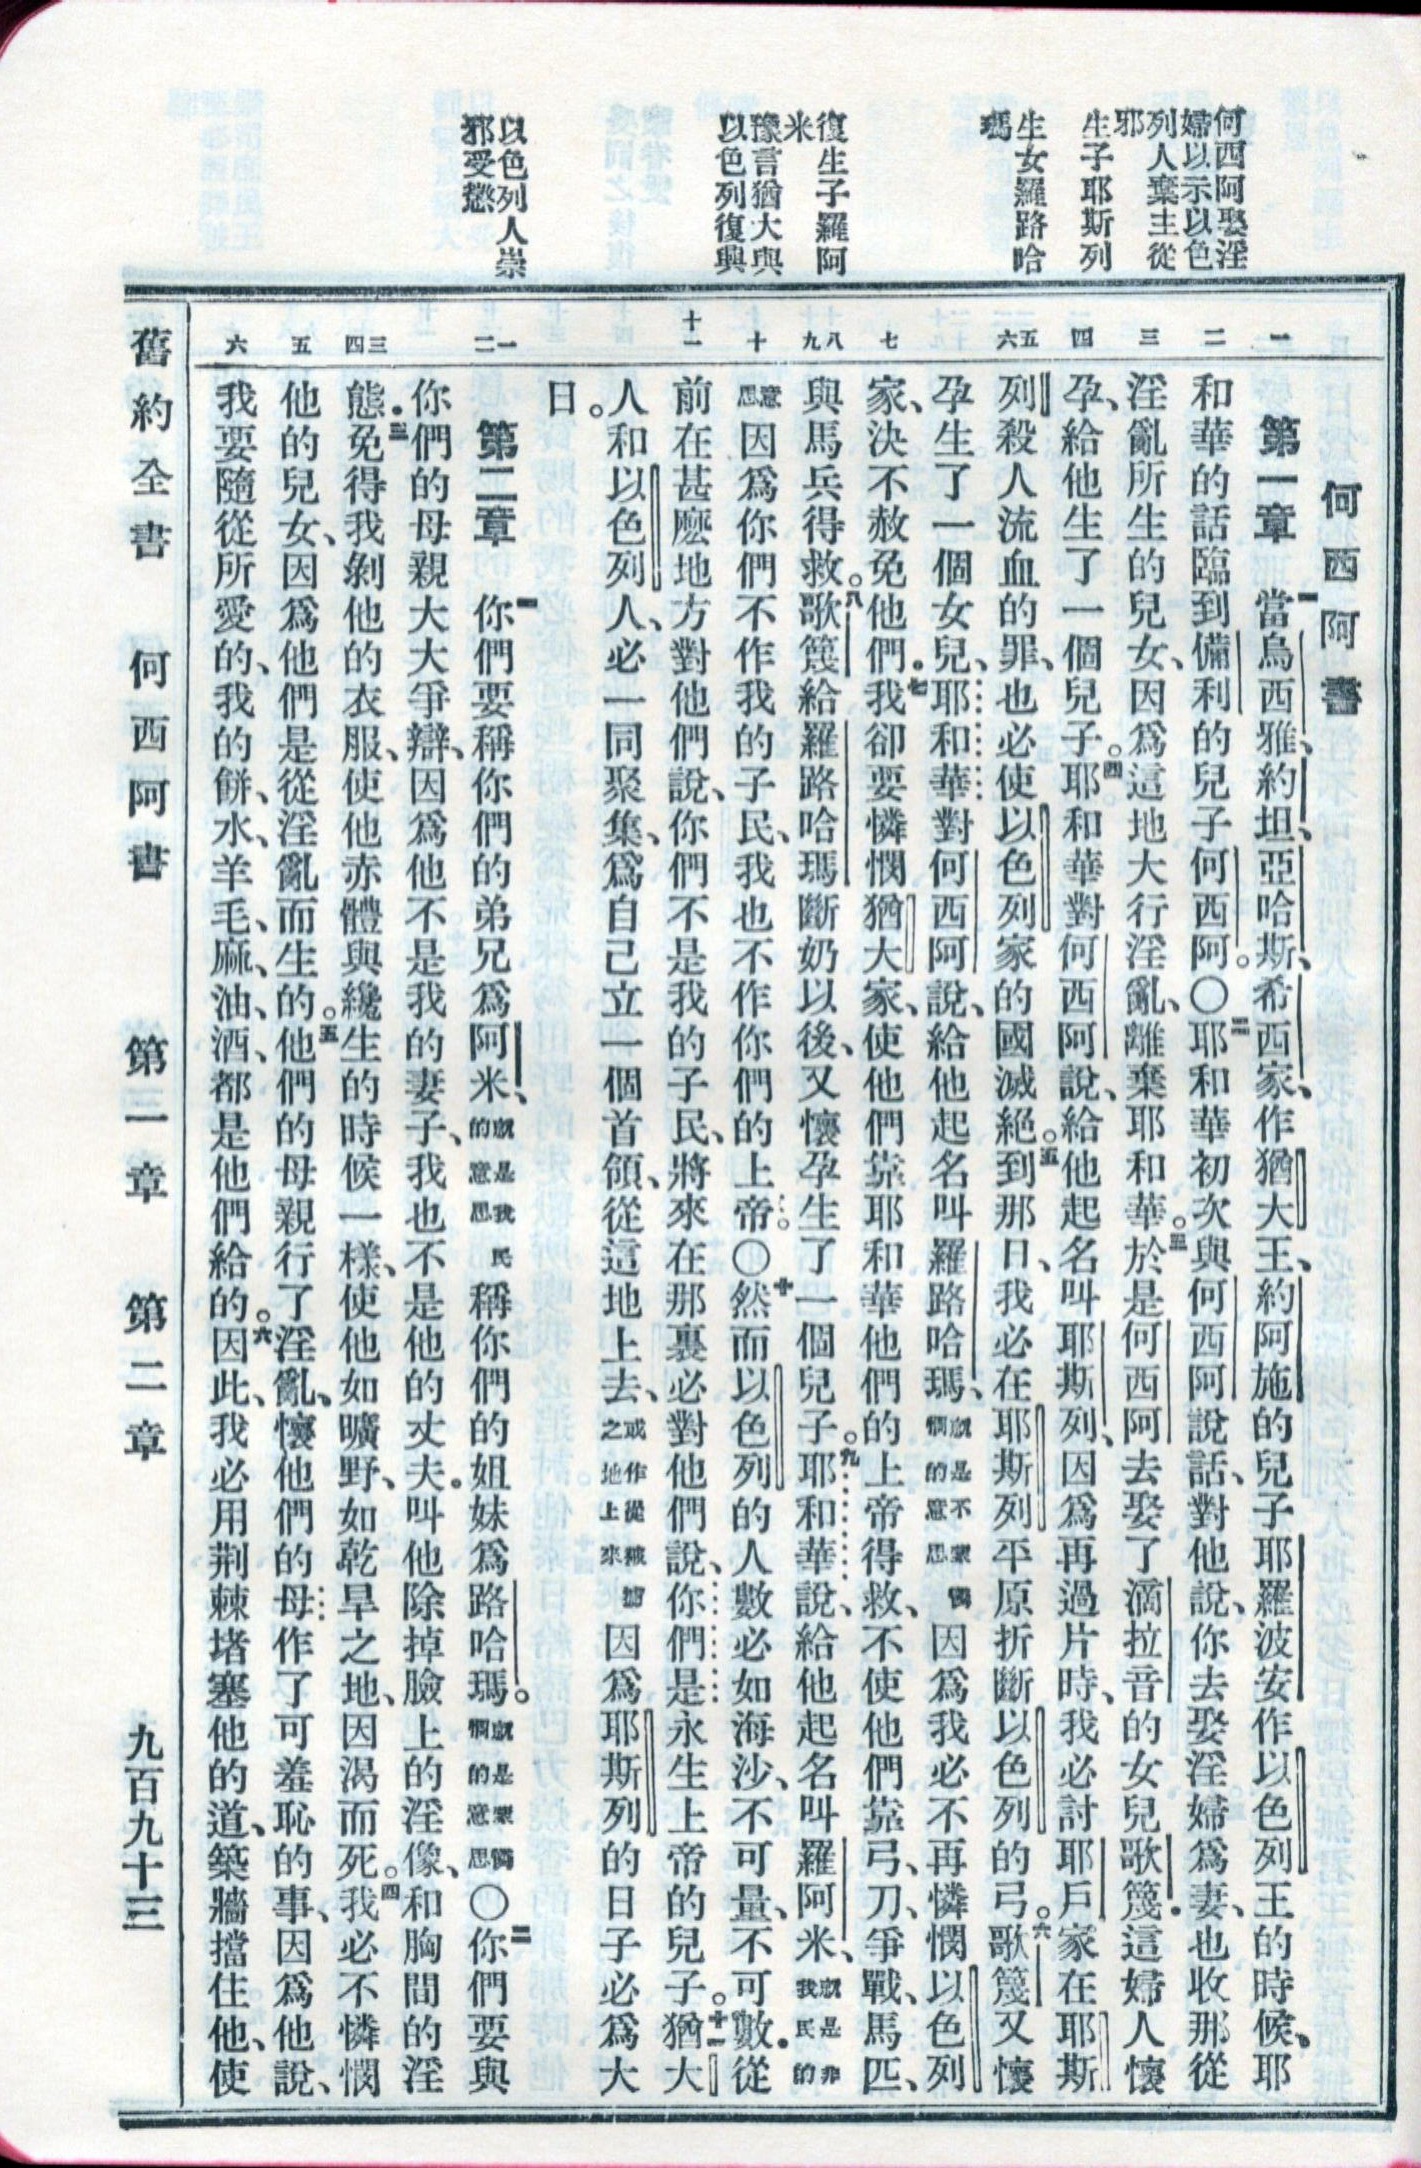 何西阿娶淫
婦以示以色
列人棄主從
邪
生子耶斯列
生女羅路哈
瑪
復生子羅阿
米
豫言猶大與
以色列復興
以色列人崇
邪受懲
何西阿書
一
第一章　一當烏西雅、約坦、亞哈斯、希西家、作猶大王、約阿施的兒子耶羅波安作以色列王的時候、耶
二
和華的話臨到備利的兒子何西阿。〇二耶和華初次與何西阿說話、對他說、你去娶淫婦爲妻、也收那從
三
淫亂所生的兒女、因爲這地大行淫亂、離棄耶和華。三於是何西阿去娶了滴拉音的女兒歌篾.這婦人懷
四
孕、給他生了一個兒子。四耶和華對何西阿說、給他起名叫耶斯列、因爲再過片時、我必討耶戶家在耶斯
五六
列殺人流血的罪、也必使以色列家的國滅絕。五到那日、我必在耶斯列平原折斷以色列的弓。六歌篾又懷
孕生了一個女兒、耶和華對何西阿說、給他起名叫羅路哈瑪、就是不蒙憐憫的意思因爲我必不再憐憫以色列
七
家、決不赦免他們.七我卻要憐憫猶大家、使他們靠耶和華他們的上帝得救、不使他們靠弓、刀、爭戰、馬匹、
八九
與馬兵得救。八歌篾給羅路哈瑪斷奶以後、又懷孕生了一個兒子。九耶和華說、給他起名叫羅阿米、就是非我民的
十
意思因爲你們不作我的子民、我也不作你們的上帝。〇十然而以色列的人數必如海沙、不可量、不可數.從
十一
前在甚麼地方對他們說、你們不是我的子民、將來在那裏必對他們說、你們是永生上帝的兒子。十一猶大
人和以色列人、必一同聚集、爲自己立一個首領、從這地上去、或作從被擄之地上來因爲耶斯列的日子必爲大
日。
一二
第二章　一你們要稱你們的弟兄爲阿米、就是我民的意思稱你們的姐妹爲路哈瑪。就是蒙憐憫的意思〇二你們要與
你們的母親大大爭辯、因爲他不是我的妻子、我也不是他的丈夫.叫他除掉臉上的淫像、和胸間的淫
三四
態.三免得我剝他的衣服、使他赤體與纔生的時候一樣、使他如曠野、如乾旱之地、因渴而死。四我必不憐憫
五
他的兒女、因爲他們是從淫亂而生的。五他們的母親行了淫亂、懷他們的母作了可羞恥的事、因爲他說、
六
我要隨從所愛的、我的餅、水、羊毛、麻、油、酒、都是他們給的。六因此、我必用荆棘堵塞他的道、築牆擋住他、使
舊約全書　何西阿書　第一章　第二章　九百九十三